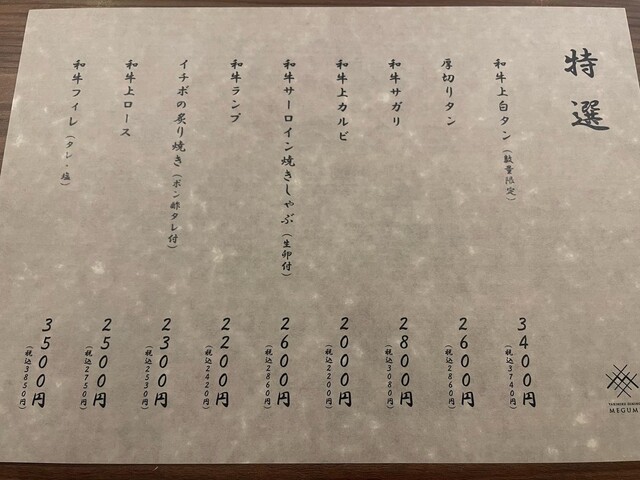 特選
和牛上白タン（数量限定）
3400円
（税込3740円）
厚切りタン
2600円
（税込2860円）
和牛サガリ
2800円
（税込3080円）
和牛上カルビ
2000円
（税込2200円）
和牛サーロイン焼きしゃぶ（生卵付）
2600円
（税込2860円）
和牛ランプ
2200円
（税込2420円）
イチボの炙り焼き（ポン酢タレ付）
2300円
（税込2530円）
和牛上ロース
2500円
（税込2750円）
和牛フィレ（タレ・塩）
3500円
（税込3850円）
MEGUMI